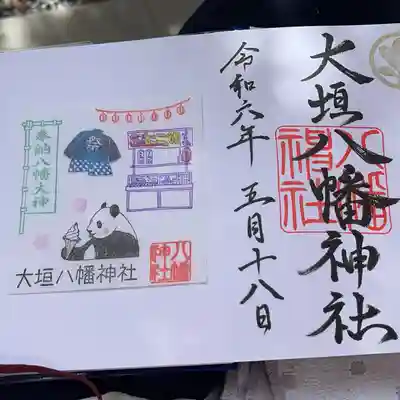 大垣八幡神社
令和六年 五月十八日
奉納八幡大神
祭
大垣八幡神社
八幡神社